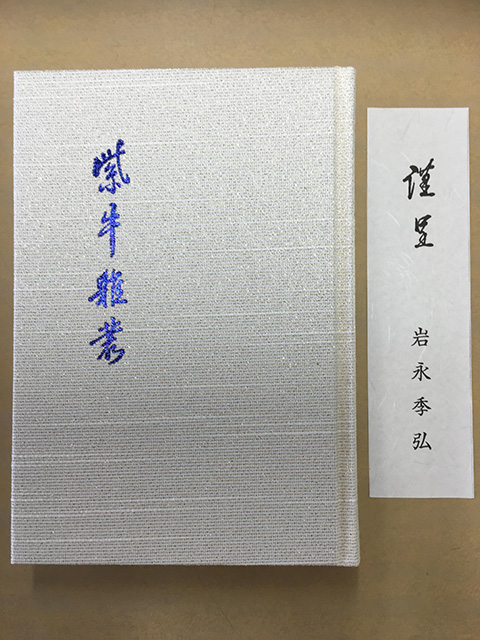 紫牛雅叢
謹呈
岩永季弘